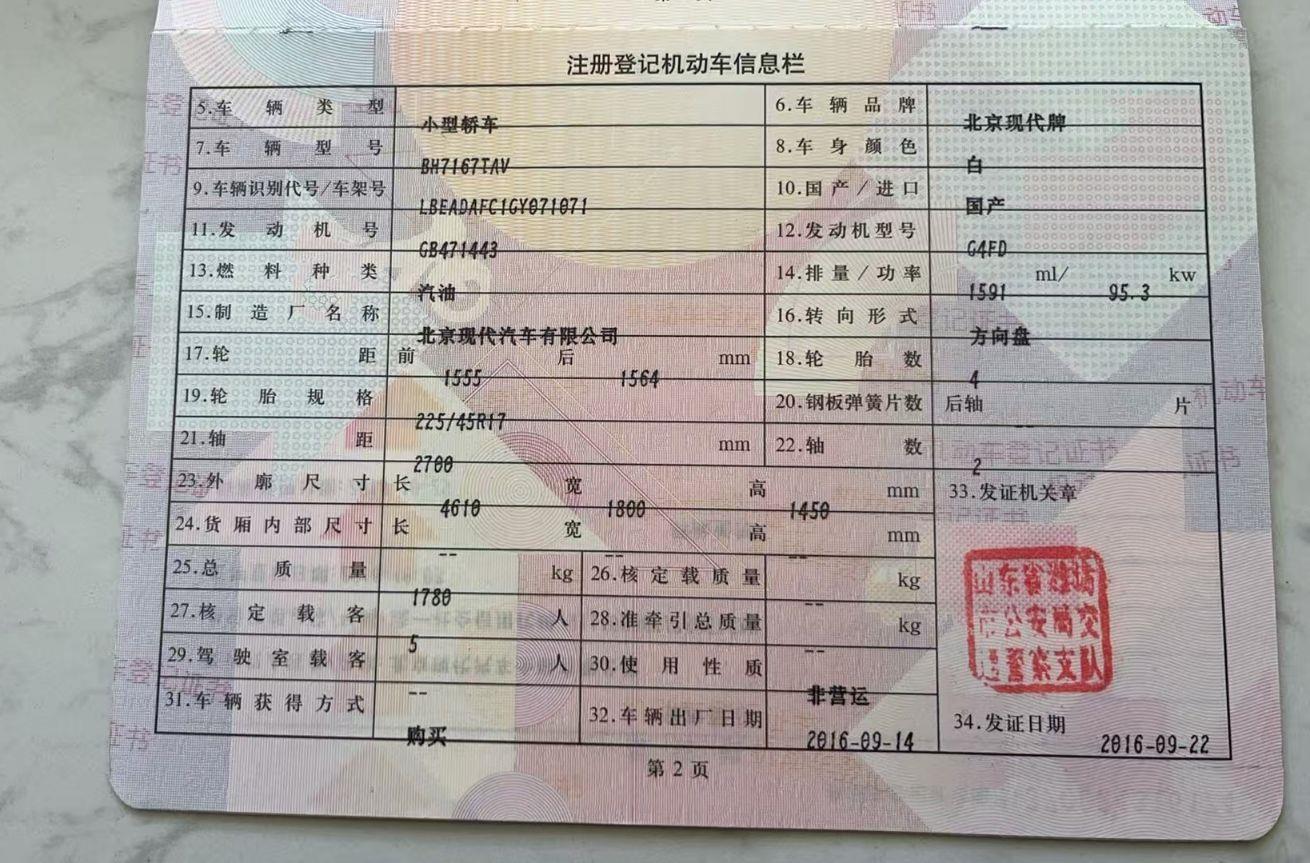 注册登记机动车信息栏
5.车辆类型 小型轿车 6.车辆品牌 北京现代牌
7.车辆型号 BH7167TAV 8.车身颜色 白
9.车辆识别代号/车架号 LBEADAFC1GY071071 10.国产/进口 国产
11.发动机号 GB471443 12.发动机型号 G4FD
13.燃料种类 汽油 14.排量/功率 1591 ml/ 95.3 kw
15.制造厂名称 北京现代汽车有限公司 16.转向形式 方向盘
17.轮距 前 1555 后 1564 mm 18.轮胎数 4
19.轮胎规格 225/45R17 20.钢板弹簧片数 后轴 -- 片
21.轴距 2700 mm 22.轴数 2
23.外廓尺寸 长 4610 宽 1800 高 1450 mm 33.发证机关章
24.货厢内部尺寸 长 -- 宽 -- 高 -- mm
25.总质量 1780 kg 26.核定载质量 -- kg
27.核定载客 5 人 28.准牵引总质量 -- kg
29.驾驶室载客 -- 人 30.使用性质 非营运
31.车辆获得方式 购买 32.车辆出厂日期 2016-09-14 34.发证日期 2016-09-22
山东省潍坊
市公安局交
通警察支队
第2页